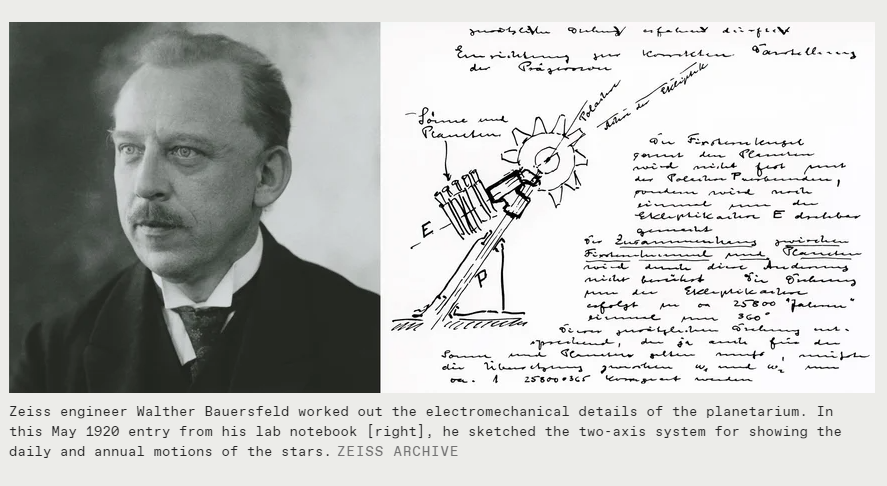 zusätzliche Drehung erfahren dürfen
Einrichtung zur korrekten Darstellung
der Präzession
Polachse
Achse der Ekliptik
Sonne und
Planeten
E
P
Die Fixsternkugel
samt den Planeten
wird nicht fest mit
der Polachse P verbunden,
sondern wird noch
einmal um die
Ekliptikachse E drehbar
gemacht
Der Zusammenhang zwischen
Fixsternhimmel und Planeten
wird durch diese Änderung
nicht berührt. Die Drehung
um die Ekliptikachse
erfolgt in ca 25800 "Jahren"
einmal um 360°
Dieser zusätzlichen Drehung ent-
sprechend, die ja auch für die
Sonne und Planeten gelten muß, müßte
die Übersetzung zwischen ω₁ und ω₂ um
ca. 1 25800·365 korrigiert werden
Zeiss engineer Walther Bauersfeld worked out the electromechanical details of the planetarium. In
this May 1920 entry from his lab notebook [right], he sketched the two-axis system for showing the
daily and annual motions of the stars. ZEISS ARCHIVE